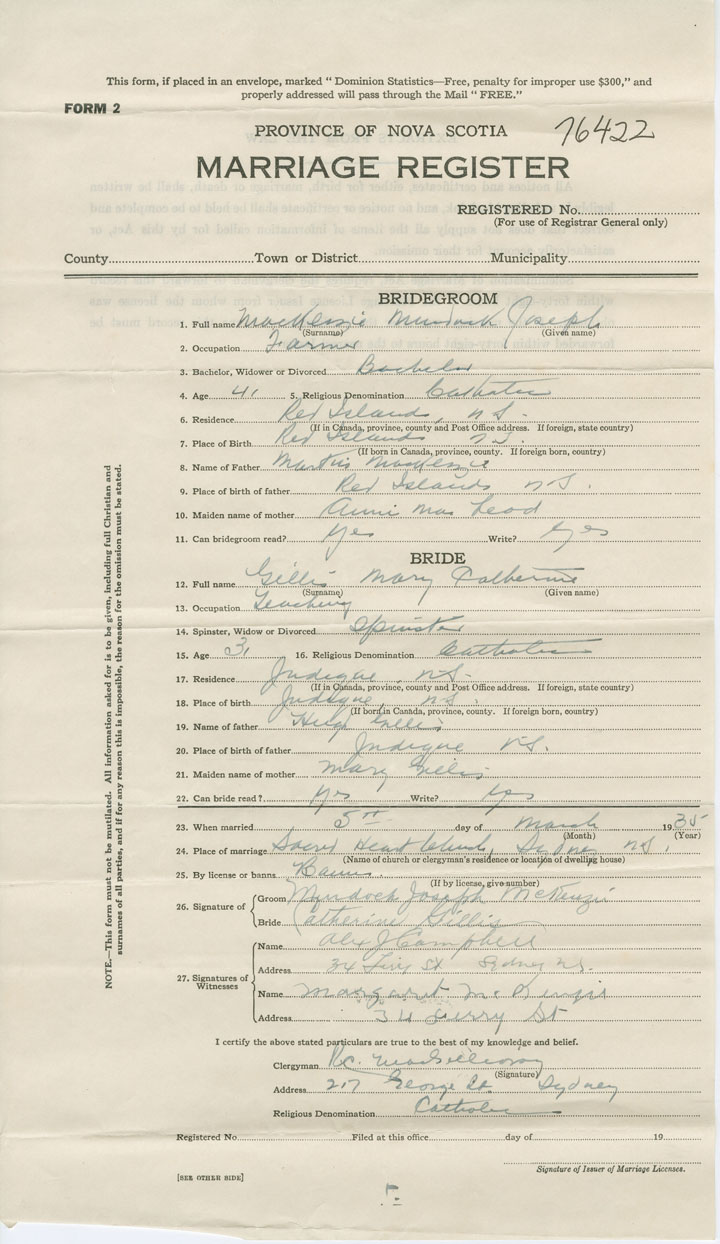 This form, if placed in an envelope, marked “ Dominion Statistics—Free, penalty for improper use $300,” and
properly addressed will pass through the Mail “ FREE.”
FORM 2
PROVINCE OF NOVA SCOTIA 76422
MARRIAGE REGISTER
REGISTERED No.
(For use of Registrar General only)
County Town or District Municipality
BRIDEGROOM
1. Full name MacKenzie Murdock Joseph
(Surname) (Given name)
2. Occupation Farmer
3. Bachelor, Widower or Divorced Bachelor
4. Age 41 5. Religious Denomination Catholic
6. Residence Red Islands, N.S.
(If in Canada, province, county and Post Office address. If foreign, state country)
7. Place of Birth Red Islands N.S.
(If born in Canada, province, county. If foreign born, country)
8. Name of Father Martin MacKenzie
9. Place of birth of father Red Islands N.S.
10. Maiden name of mother Annie MacLeod
11. Can bridegroom read? Yes Write? Yes
BRIDE
12. Full name Gillis Mary Catherine
(Surname) (Given name)
13. Occupation Teaching
14. Spinster, Widow or Divorced Spinster
15. Age 31 16. Religious Denomination Catholic
17. Residence Judique N.S.
(If in Canada, province, county and Post Office address. If foreign, state country)
18. Place of birth Judique, N.S.
(If born in Canada, province, county. If foreign born, country)
19. Name of father Hugh Gillis
20. Place of birth of father Judique N.S.
21. Maiden name of mother Mary Gillis
22. Can bride read? Yes Write? Yes
23. When married 5th day of March 1935
(Month) (Year)
24. Place of marriage Sacred Heart Church, Sydney N.S.
(Name of church or clergyman's residence or location of dwelling house)
25. By license or banns Banns
(If by license, give number)
26. Signature of Groom Murdock Joseph McKenzie
Bride Catherine Gillis
27. Signatures of Witnesses Name Alex J Campbell
Address 34 St Sydney N.S.
Name Margaret McKenzie
Address 34 St
I certify the above stated particulars are true to the best of my knowledge and belief.
Clergyman R.C. MacGillivray
(Signature)
Address 217 George St. Sydney
Religious Denomination Catholic
Registered No. Filed at this office day of 19
Signature of Issuer of Marriage Licenses.
[SEE OTHER SIDE]
NOTE.—This form must not be mutilated. All information asked for is to be given, including full Christian and
surnames of all parties, and if for any reason this is impossible, the reason for the omission must be stated.